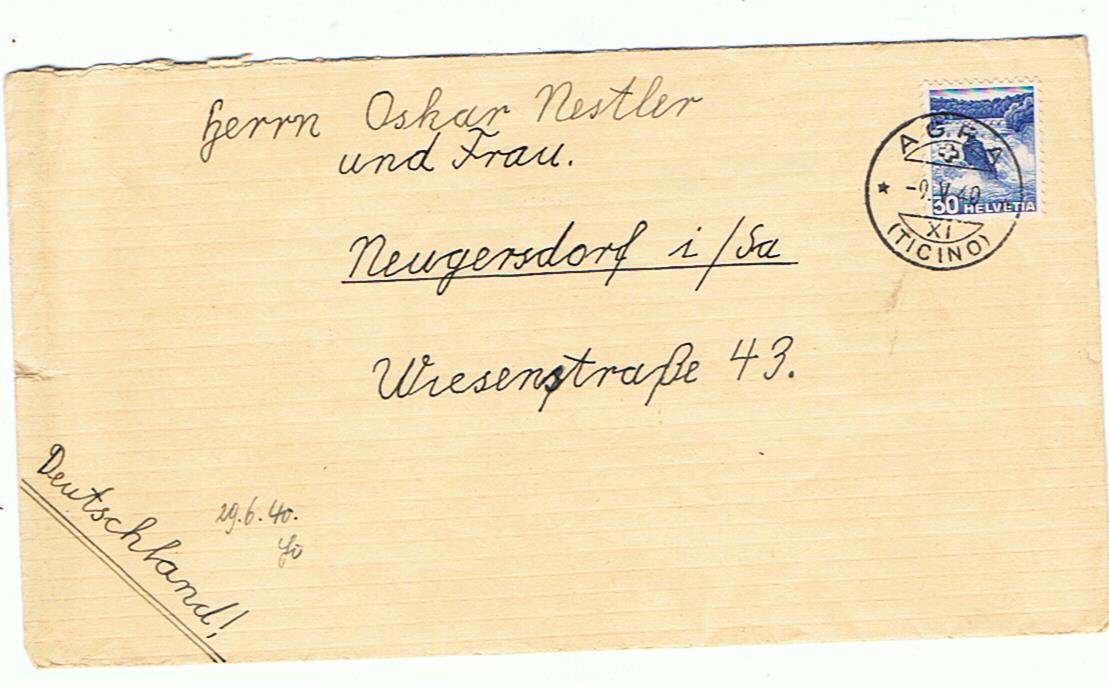 Herrn Oskar Nestler
und Frau.
Neugersdorf i/Sa
Wiesenstraße 43.
Deutschland!
29.6.40.
AGRA
V.40
XI
(TICINO)
30 HELVETIA